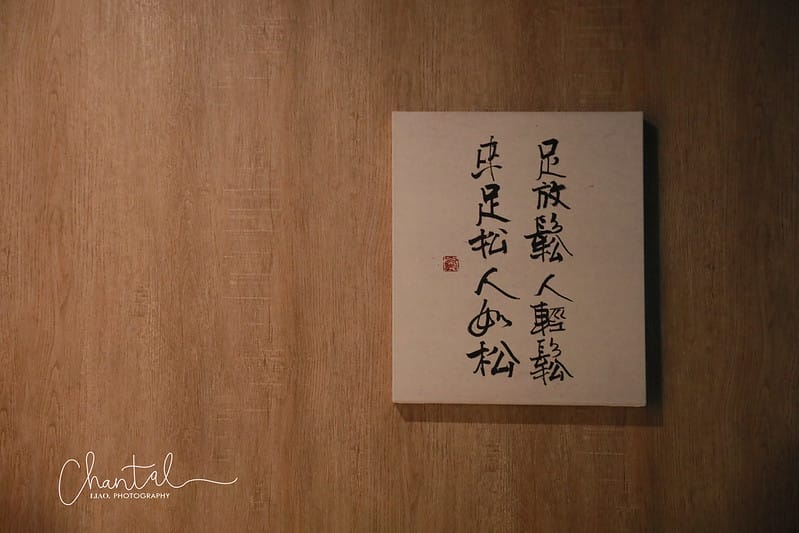 足放鬆人輕鬆
来足松人如松
Chantal
LIAO. PHOTOGRAPHY